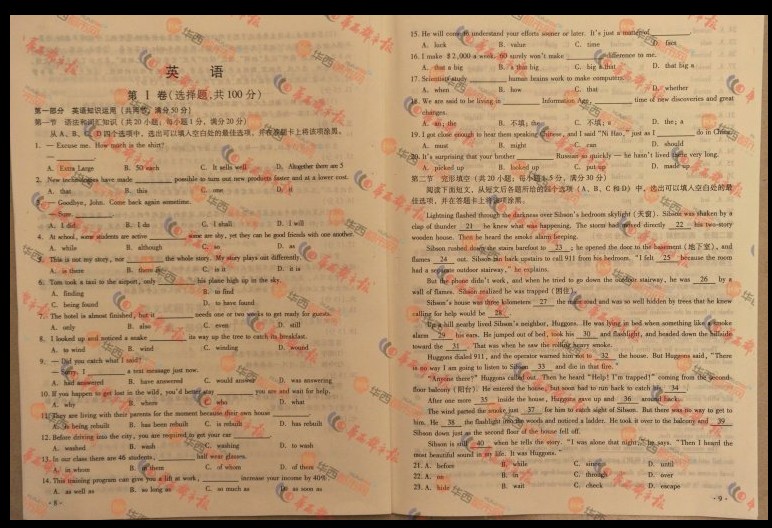 英 语
第 I 卷(选择题,共100分)
第一部分 英语知识运用(共两节,满分50分)
第一节 语法和词汇知识(共20小题;每小题1分,满分20分)
从A、B、C、D四个选项中,选出可以填入空白处的最佳选项,并在答题卡上将该项涂黑。
1. — Excuse me. How much is the shirt?
— ______.
A. Extra Large B. 50 each C. It sells well D. Altogether there are 5
2. New technologies have made ______ possible to turn out new products faster and at a lower cost.
A. that B. this C. one D. it
3. — Goodbye, John. Come back again sometime.
— Sure. ______.
A. I did B. I do C. I shall D. I will
4. At school, some students are active ______ some are shy, yet they can be good friends with one another.
A. while B. although C. so D. as
5. This is not my story, nor ______ the whole story. My story plays out differently.
A. is there B. there is C. is it D. it is
6. Tom took a taxi to the airport, only ______ his plane high up in the sky.
A. finding B. to find
C. being found D. to have found
7. The hotel is almost finished, but it ______ needs one or two weeks to get ready for guests.
A. only B. also C. even D. still
8. I looked up and noticed a snake ______ its way up the tree to catch its breakfast.
A. to wind B. wind C. winding D. wound
9. — Did you catch what I said?
— Sorry. I ______ a text message just now.
A. had answered B. have answered C. would answer D. was answering
10. If you happen to get lost in the wild, you'd better stay ______ you are and wait for help.
A. why B. where C. who D. what
11. They are living with their parents for the moment because their own house ______.
A. is being rebuilt B. has been rebuilt C. is rebuilt D. has rebuilt
12. Before driving into the city, you are required to get your car ______.
A. washed B. wash C. washing D. to wash
13. In our class there are 46 students, ______ half wear glasses.
A. in whom B. in them C. of whom D. of them
14. This training program can give you a lift at work, ______ increase your income by 40%.
A. as well as B. so long as C. so much as D. as soon as
- 8 -
15. He will come to understand your efforts sooner or later. It's just a matter of ______.
A. luck B. value C. time D. fact
16. I make $2,000 a week. 60 surely won't make ______ difference to me.
A. that a big B. a that big C. big a that D. that big a
17. Scientists study ______ human brains work to make computers.
A. when B. how C. that D. whether
18. We are said to be living in ______ Information Age, ______ time of new discoveries and great
changes.
A. an; the B. 不填; the C. 不填; a D. the; a
19. I got close enough to hear them speaking Chinese, and I said "Ni Hao," just as I ______ do in China.
A. must B. might C. can D. should
20. It's surprising that your brother ______ Russian so quickly — he hasn't lived there very long.
A. picked up B. looked up C. put up D. made up
第二节 完形填空(共20小题;每小题1.5分,满分30分)
阅读下面短文,从短文后各题所给的四个选项(A、B、C和D)中,选出可以填入空白处的最
佳选项,并在答题卡上将该项涂黑。
Lightning flashed through the darkness over Sibson's bedroom skylight (天窗). Sibson was shaken by a
clap of thunder 21 he knew what was happening. The storm had moved directly 22 his two-story
wooden house. Then he heard the smoke alarm beeping.
Sibson rushed down the stairs barefoot to 23 ; he opened the door to the basement (地下室), and
flames 24 out. Sibson ran back upstairs to call 911 from his bedroom. "I felt 25 because the room
had a separate outdoor stairway," he explains.
But the phone didn't work, and when he tried to go down the outdoor stairway, he was 26 by a
wall of flames. Sibson realized he was trapped (困住).
Sibson's house was three kilometers 27 the main road and was so well hidden by trees that he knew
calling for help would be 28 .
Up a hill nearby lived Sibson's neighbor, Huggons. He was lying in bed when something like a smoke
alarm 29 his ears. He jumped out of bed, took his 30 and flashlight, and headed down the hillside
toward the 31 . That was when he saw the rolling heavy smoke.
Huggons dialed 911, and the operator warned him not to 32 the house. But Huggons said, "There
is no way I am going to listen to Sibson 33 and die in that fire."
"Anyone there?" Huggons called out. Then he heard "Help! I'm trapped!" coming from the second-
floor balcony (阳台). He entered the house, but soon had to run back to catch his 34 .
After one more 35 inside the house, Huggons gave up and 36 around back.
The wind parted the smoke just 37 for him to catch sight of Sibson. But there was no way to get to
him. He 38 the flashlight into the woods and noticed a ladder. He took it over to the balcony and 39
Sibson down just as the second floor of the house fell off.
Sibson is still 40 when he tells the story. "I was alone that night," he says. "Then I heard the
most beautiful sound in my life. It was Huggons."
21. A. before B. while C. since D. until
22. A. on B. in C. through D. over
23. A. hide B. wait C. check D. escape
- 9 -